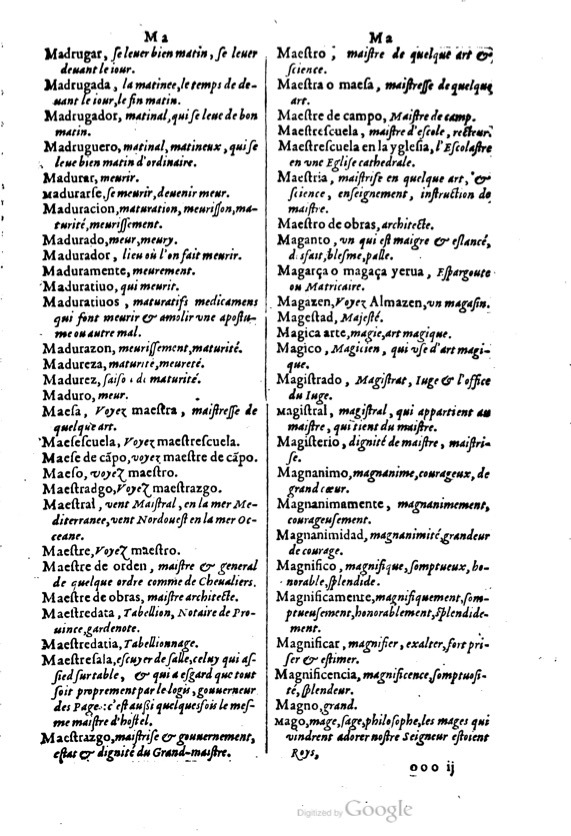 Ma
Madrugar, ſe leuer bien matin, ſe leuer
deuant le iour.
Madrugada, la matinee, le temps de de-
uant le iour, le fin matin.
Madrugador, matinal, qui ſe leue de bon
matin.
Madruguero, matinal, matineux, qui ſe
leue bien matin d'ordinaire.
Madurar, meurir.
Madurarſe, ſe meurir, deuenir meur.
Maduracion, maturation, meuriſſon, ma-
turité, meuriſſement.
Madurado, meur, meury.
Madurador, lieu où l'on fait meurir.
Maduramente, meurement.
Maduratiuo, qui meurit.
Maduratiuos, maturatifs medicamens
qui font meurir & amolir vne apoſtu-
me ou autre mal.
Madurazon, meuriſſement, maturité.
Madureza, maturité, meureté.
Madurez, ſaiſo de maturité.
Maduro, meur.
Maeſa, Voyez maeſtra, maiſtreſſe de
quelque art.
Maeſeſcuela, Voyez maeſtreſcuela.
Maeſe de cãpo, voyez maeſtre de cãpo.
Maeſo, voyez maeſtro.
Maeſtradgo, Voyez maeſtrazgo.
Maeſtral, vent Maiſtral, en la mer Me-
diterranee, vent Nordoueſt en la mer Oc-
ceane.
Maeſtre, Voyez maeſtro.
Maeſtre de orden, maiſtre & general
de quelque ordre comme de Cheualiers.
Maeſtre de obras, maiſtre architecte.
Maeſtredata, Tabellion, Notaire de Pro-
uince, gardenote.
Maeſtredatia, Tabellionnage.
Maeſtreſala, eſcuyer de ſalle, celuy qui aſ-
ſied ſur table, & qui a eſgard que tout
ſoit proprement par le logis, gouuerneur
des Page: c'eſt auſſi quelquesfois le meſ-
me maiſtre d'hoſtel.
Maeſtrazgo, maiſtriſe & gouuernement,
eſtat & dignité du Grand-maiſtre.
Ma
Maeſtro, maiſtre de quelque art &
ſcience.
Maeſtra o maeſa, maiſtreſſe de quelque
art.
Maeſtre de campo, Maiſtre de camp.
Maeſtreſcuela, maiſtre d'eſcole, recteur.
Maeſtreſcuela en la ygleſia, l'Eſcolaſtre
en vne Egliſe cathedrale.
Maeſtria, maiſtriſe en quelque art, &
ſcience, enſeignement, inſtruction de
maiſtre.
Maeſtro de obras, architecte.
Maganto, vn qui eſt maigre & eſlancé,
d, ſfait, bleſme, palle.
Magarça o magaça yerua, Eſpargoute
ou Matricaire.
Magazen, Voyez Almazen, vn magaſin.
Mageſtad, Majeſté.
Magica arte, magie, art magique.
Magico, Magicien, qui vſe d'art magi-
que.
Magiſtrado, Magiſtrat, Iuge & l'office
du Iuge.
Magiſtral, magiſtral, qui appartient au
maiſtre, qui tient du maiſtre.
Magiſterio, dignité de maiſtre, maiſtri-
ſe.
Magnanimo, magnanime, courageux, de
grand cœur.
Magnanimamente, magnanimement,
courageuſement.
Magnanimidad, magnanimité, grandeur
de courage.
Magnifico, magnifique, ſomptueux, ho-
norable, ſplendide.
Magnificamente, magnifiquement, ſom-
ptueuſement, honorablement, ſplendide-
ment.
Magnificar, magnifier, exalter, fort pri-
ſer & eſtimer.
Magnificencia, magnificence, ſomptuoſi-
té, ſplendeur.
Magno, grand.
Mago, mage, ſage, philoſophe, les mages qui
vindrent adorer noſtre Seigneur eſtoient
Roys,
ooo ij
Digitized by Google